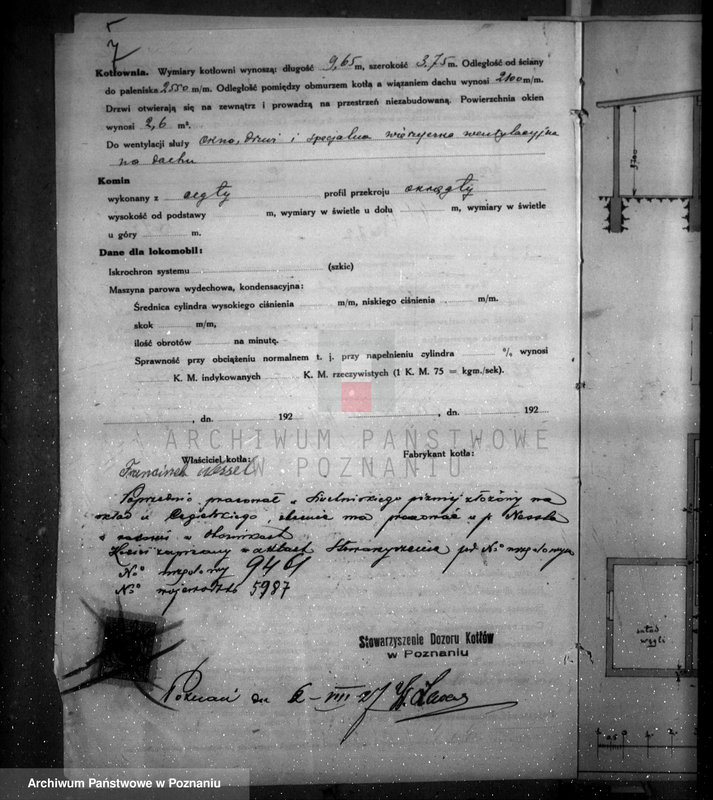 7
Kotłownia. Wymiary kotłowni wynoszą: długość 9,65 m, szerokość 3,75 m. Odległość od ściany
do paleniska 2550 m/m. Odległość pomiędzy obmurzem kotła a wiązaniem dachu wynosi 2100 m/m.
Drzwi otwierają się na zewnątrz i prowadzą na przestrzeń niezabudowaną. Powierzchnia okien
wynosi 2,6 m².
Do wentylacji służy okna, drzwi i specjalna wieżyczka wentylacyjna
na dachu
Komin
wykonany z cegły profil przekroju okrągły
wysokość od podstawy m, wymiary w świetle u dołu m, wymiary w świetle
u góry m.
Dane dla lokomobil:
Iskrochron systemu (szkic)
Maszyna parowa wydechowa, kondensacyjna:
Średnica cylindra wysokiego ciśnienia m/m, niskiego ciśnienia m/m.
skok m/m,
ilość obrotów na minutę.
Sprawność przy obciążeniu normalnem t. j. przy napełnieniu cylindra % wynosi
K. M. indykowanych K. M. rzeczywistych (1 K. M. 75 = kgm./sek).
, dn. 192 , dn. 192
ARCHIWUM PAŃSTWOWE
W POZNANIU
Właściciel kotła: Fabrykant kotła:
Franciszek Nessel
Poprzednio pracował u później złożony na
skład u Cegielskiego, obecnie ma pracować u p. Nessla
w
Kocioł zapisany w aktach Stowarzyszenia pod
No 9401
No 5987
Stowarzyszenie Dozoru Kotłów
w Poznaniu
Poznań dn 6-VIII 27
3700
skład
węgli
1 0.5 0 1
Archiwum Państwowe w Poznaniu